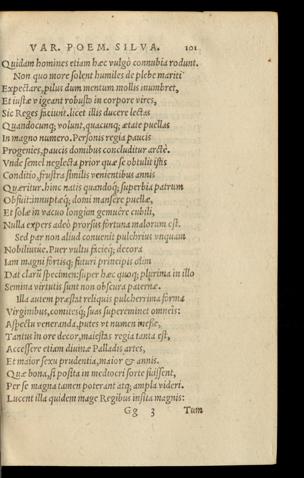 VAR. POEM. SILVA. 101
Quidam homines etiam hæc vulgò connubia rodunt.
Non quo more solent humiles de plebe mariti
Expectare, pilus dum mentum mollis inumbret,
Et iustæ vigeant robusto in corpore vires,
Sic Reges faciunt. licet illis ducere lectas
Quandocunq; volunt, quacunq; ætate puellas
In magno numero. Personis regia paucis
Progenies, paucis domibus concluditur arctè.
Vnde semel neglecta prior quæ se obtulit istis
Conditio, frustra similis venientibus annis
Quæritur. hinc natis quandoq; superbia patrum
Obfuit: innuptæq; domi mansere puellæ,
Et solæ in vacuo longùm gemuêre cubili,
Nulla expers adeò prorsus fortuna malorum est.
Sed par non aliud conuenit pulchrius vnquam
Nobiliusue. Puer vultu facieq; decora
Iam magni fortisq; futuri principis olim
Dat clarũ specimen: super hæc quoq; plurima in illo
Semina virtutis sunt non obscura paternæ.
Illa autem præstat reliquis pulcherrima forma
Virginibus, comitesq; suas supereminet omneis:
Aspectu veneranda, putes vt numen inesse,
Tantus in ore decor, maiestas regia tanta est,
Accessere etiam diuinæ Palladis artes,
Et maior sexu prudentia, maior & annis.
Quæ bona, si posita in mediocri sorte fuissent,
Per se magna tamen poterant atq; ampla videri.
Lucent illa quidem mage Regibus insita magnis:
Gg 3 Tum